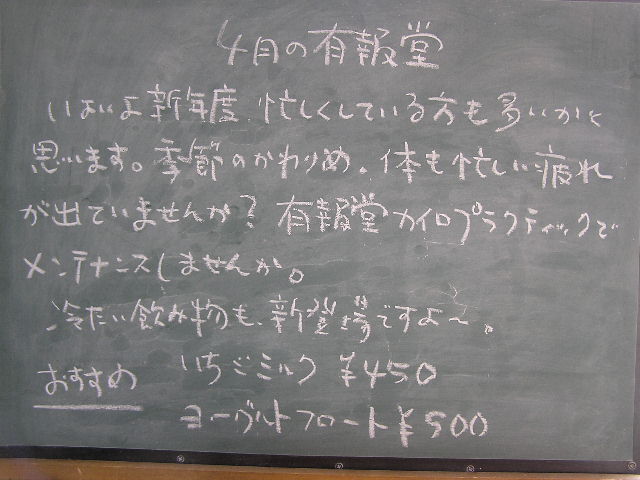 4月の有報堂
いよいよ新年度、忙しくしている方も多いかと
思います。季節のかわりめ、体も忙しい疲れ
が出ていませんか?有報堂カイロプラクティックで
メンテナンスしませんか。
冷たい飲み物も、新登場ですよ〜。
おすすめ いちごミルク ¥450
ヨーグルトフロート ¥500